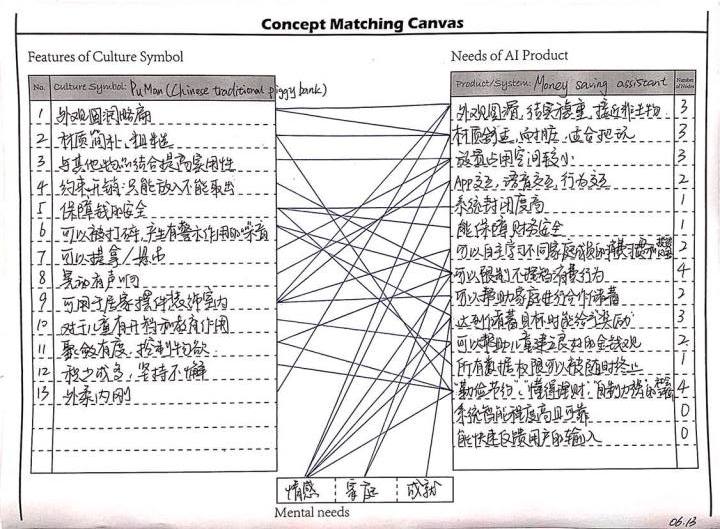 Concept Matching Canvas
Features of Culture Symbol
No. Culture Symbol: PuMan (Chinese traditional piggy bank)
1 外观圆润
2 材质简朴
3 与其他物品结合提高实用性
4 约束开销:只能放入不能取出
5 保障钱的安全
6 可以被打碎,产生有警示作用的噪音
7 可以提拿/
8 晃动有声响
9 可用于居家摆件装饰室内
10 对于儿童有开智和教育作用
11 聚敛有度,控制物欲
12 积少成多,坚持不懈
13 外柔内刚
Needs of AI Product
Product/System: Money saving assistant Number of Nodes
外观圆滑,结实稳重,接近非生物 3
材质舒适,耐脏,适合把玩 3
放置占用空间较小 3
App交互,语音交互,行为交互 2
系统封闭度高 1
能保障财务安全 1
可以自主学习不同家庭成员的 2
可以限制不理智消费行为 4
可以帮助家庭进行合作储蓄 2
达到储蓄目标时能给予奖励 3
可以帮助儿童建立良好的金钱观 2
所有数据权限可以被随时终止 1
"勤俭节约","懂得理财" 4
系统智能程度高且可靠 0
能快速反馈用户的输入 0
情感 家庭 成就
Mental needs
06.13